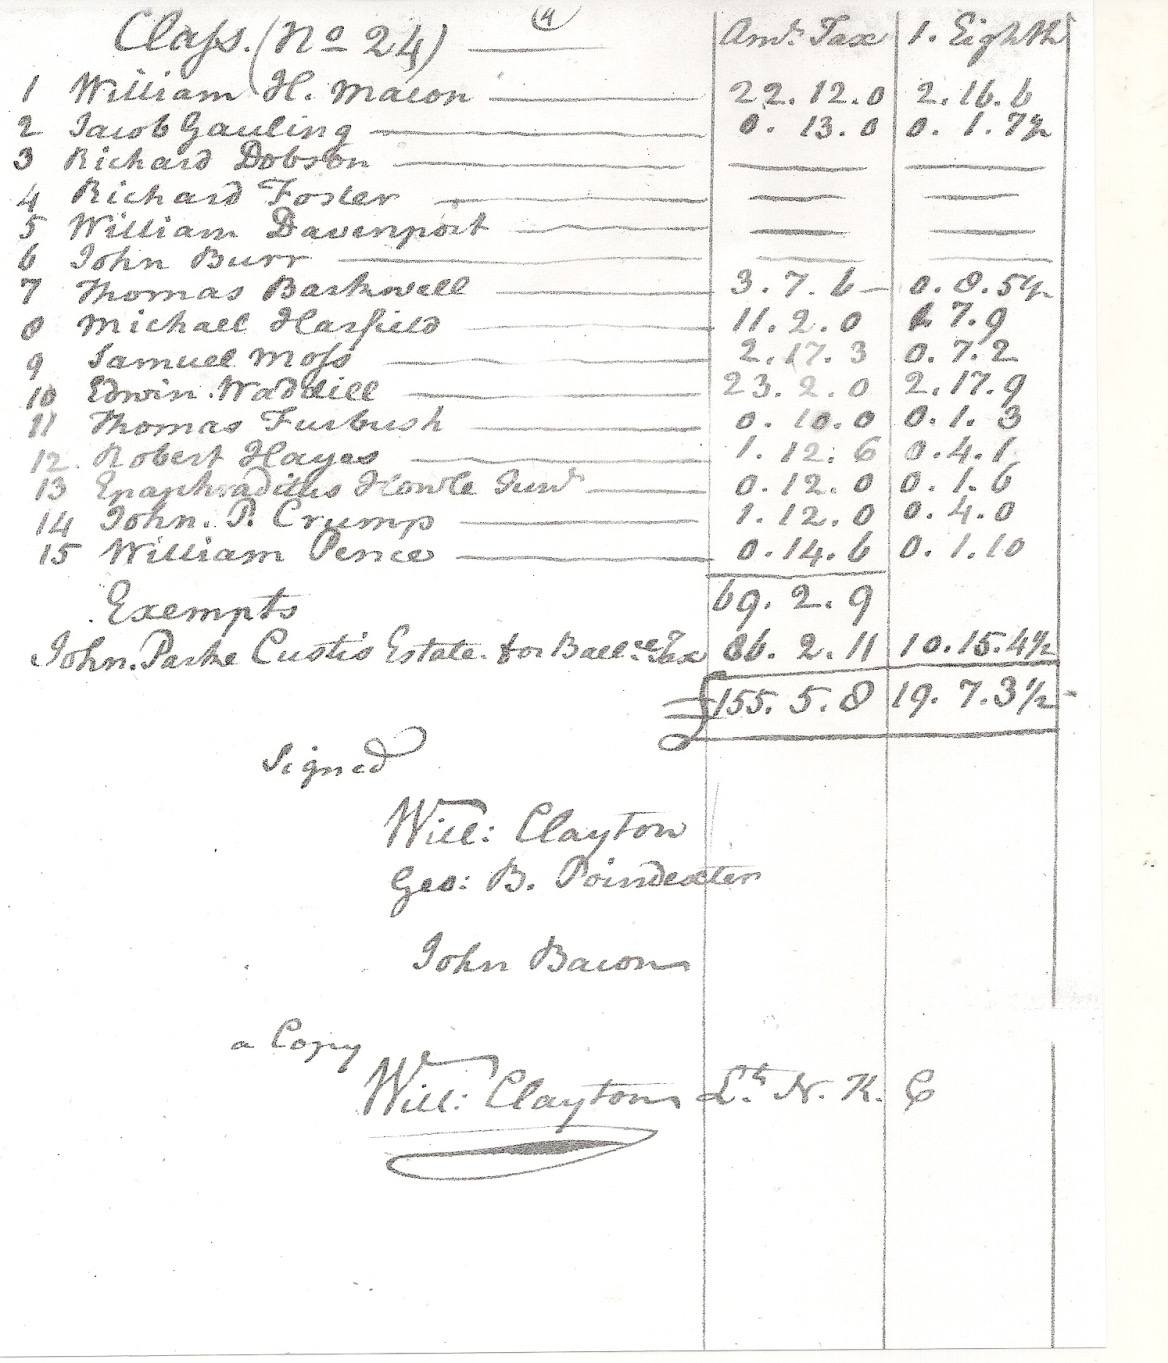 (4)
Class. (No 24) Amt. Tax 1. Eighth
1 William H. Macon 22. 12. 0 2. 16. 6
2 Jacob Gauling 0. 13. 0 0. 1. 7½
3 Richard Dobson
4 Richard Foster
5 William Davenport
6 John Burr
7 Thomas Barkwell 3. 7. 6 0. 8. 5½
8 Michael Harfield 11. 2. 0 1 7. 9
9 Samuel Moss 2. 17. 3 0. 7. 2
10 Edwin Waddill 23. 2. 0 2. 17. 9
11 Thomas Furbush 0. 10. 0 0. 1. 3
12. Robert Hayes 1. 12. 6 0. 4. 1
13 Epaphraditus Howle Junr 0. 12. 0 0. 1. 6
14 John. P. Crump 1. 12. 0 0. 4. 0
15 William Pence 0. 14. 6 0. 1. 10
Exempts 69. 2. 9
John. Parke Custis Estate. for Ballce. Tax 86. 2. 11 10. 15. 4½
155. 5. 8 19. 7. 3½
Signed
Will: Clayton
Geo: B. Poindexter
John Bacon
a Copy
Will: Clayton Lt. N. K. C